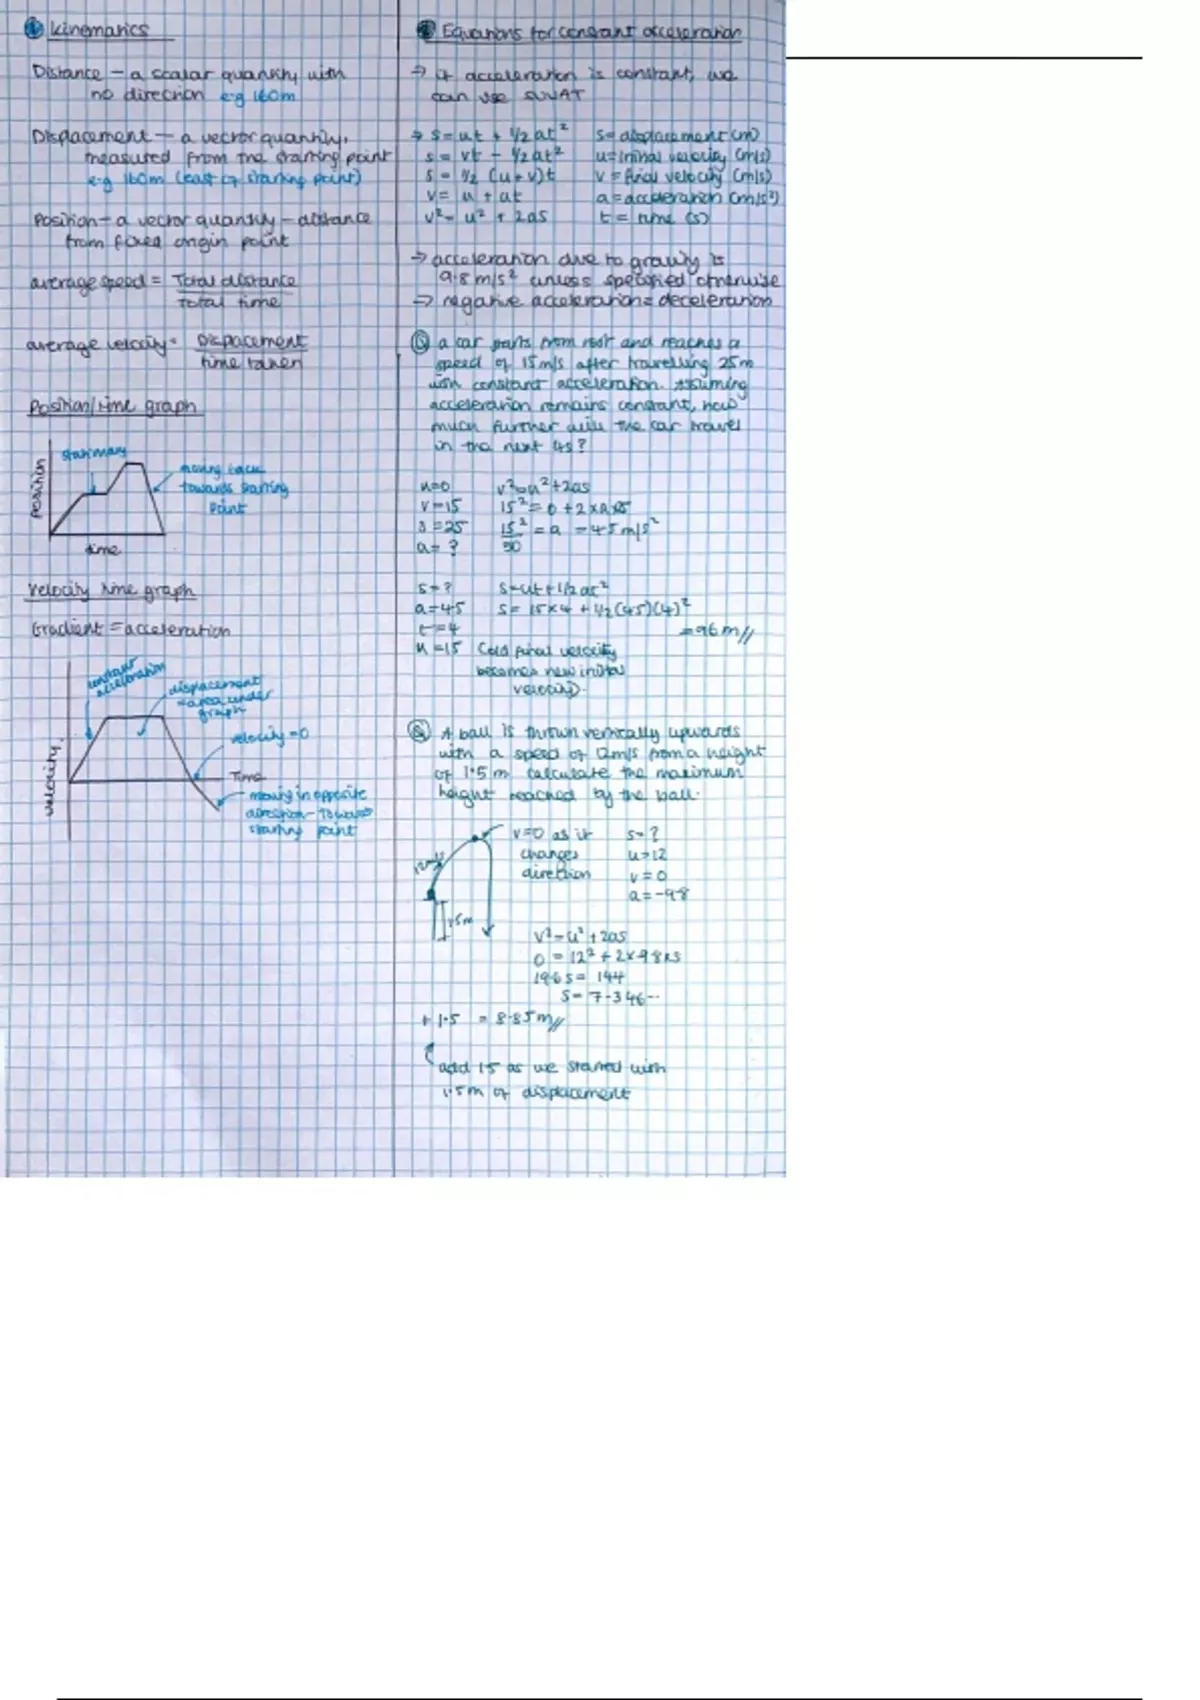 ① Kinematics
Distance – a scalar quantity with
no direction e.g 160m
Displacement – a vector quantity,
measured from the starting point
e.g 160m (east of starting point)
Position – a vector quantity – distance
from fixed origin point
average speed = Total distance
total time
average velocity = Displacement
time taken
Position/time graph
stationary
moving back
towards starting
point
position
time
Velocity time graph
Gradient = acceleration
constant
acceleration
displacement
= area under
graph
velocity = 0
Time
velocity
moving in opposite
direction – towards
starting point
Equations for constant acceleration
→ if acceleration is constant, we
can use SUVAT
→ s = ut + 1/2 at² s = displacement (m)
s = vt - 1/2 at² u = initial velocity (m/s)
s = 1/2 (u + v)t v = final velocity (m/s)
v = u + at a = acceleration (m/s²)
v² = u² + 2as t = time (s)
→ acceleration due to gravity is
9.8 m/s² unless specified otherwise
→ negative acceleration = deceleration
Ⓠ a car starts from rest and reaches a
speed of 15m/s after travelling 25m
with constant acceleration. Assuming
acceleration remains constant, how
much further will the car travel
in the next 4s?
u=0 v²=u²+2as
v=15 15² = 0 + 2×a×25
s=25 15² = a = 4.5 m/s²
a=? 50
s=? s=ut+1/2at²
a=4.5 s= 15×4 + 1/2(4.5)(4)²
t=4 = 96m//
u=15 (old final velocity
becomes new initial
velocity).
Ⓠ A ball is thrown vertically upwards
with a speed of 12m/s from a height
of 1.5m calculate the maximum
height reached by the ball.
v=0 as it s=?
changes u=12
direction v=0
a=-9.8
12m/s
1.5m
v²=u²+2as
0 = 12² + 2×-9.8×s
19.6s = 144
s= 7.346...
+ 1.5 = 8.85m//
add 1.5 as we started with
1.5m of displacement